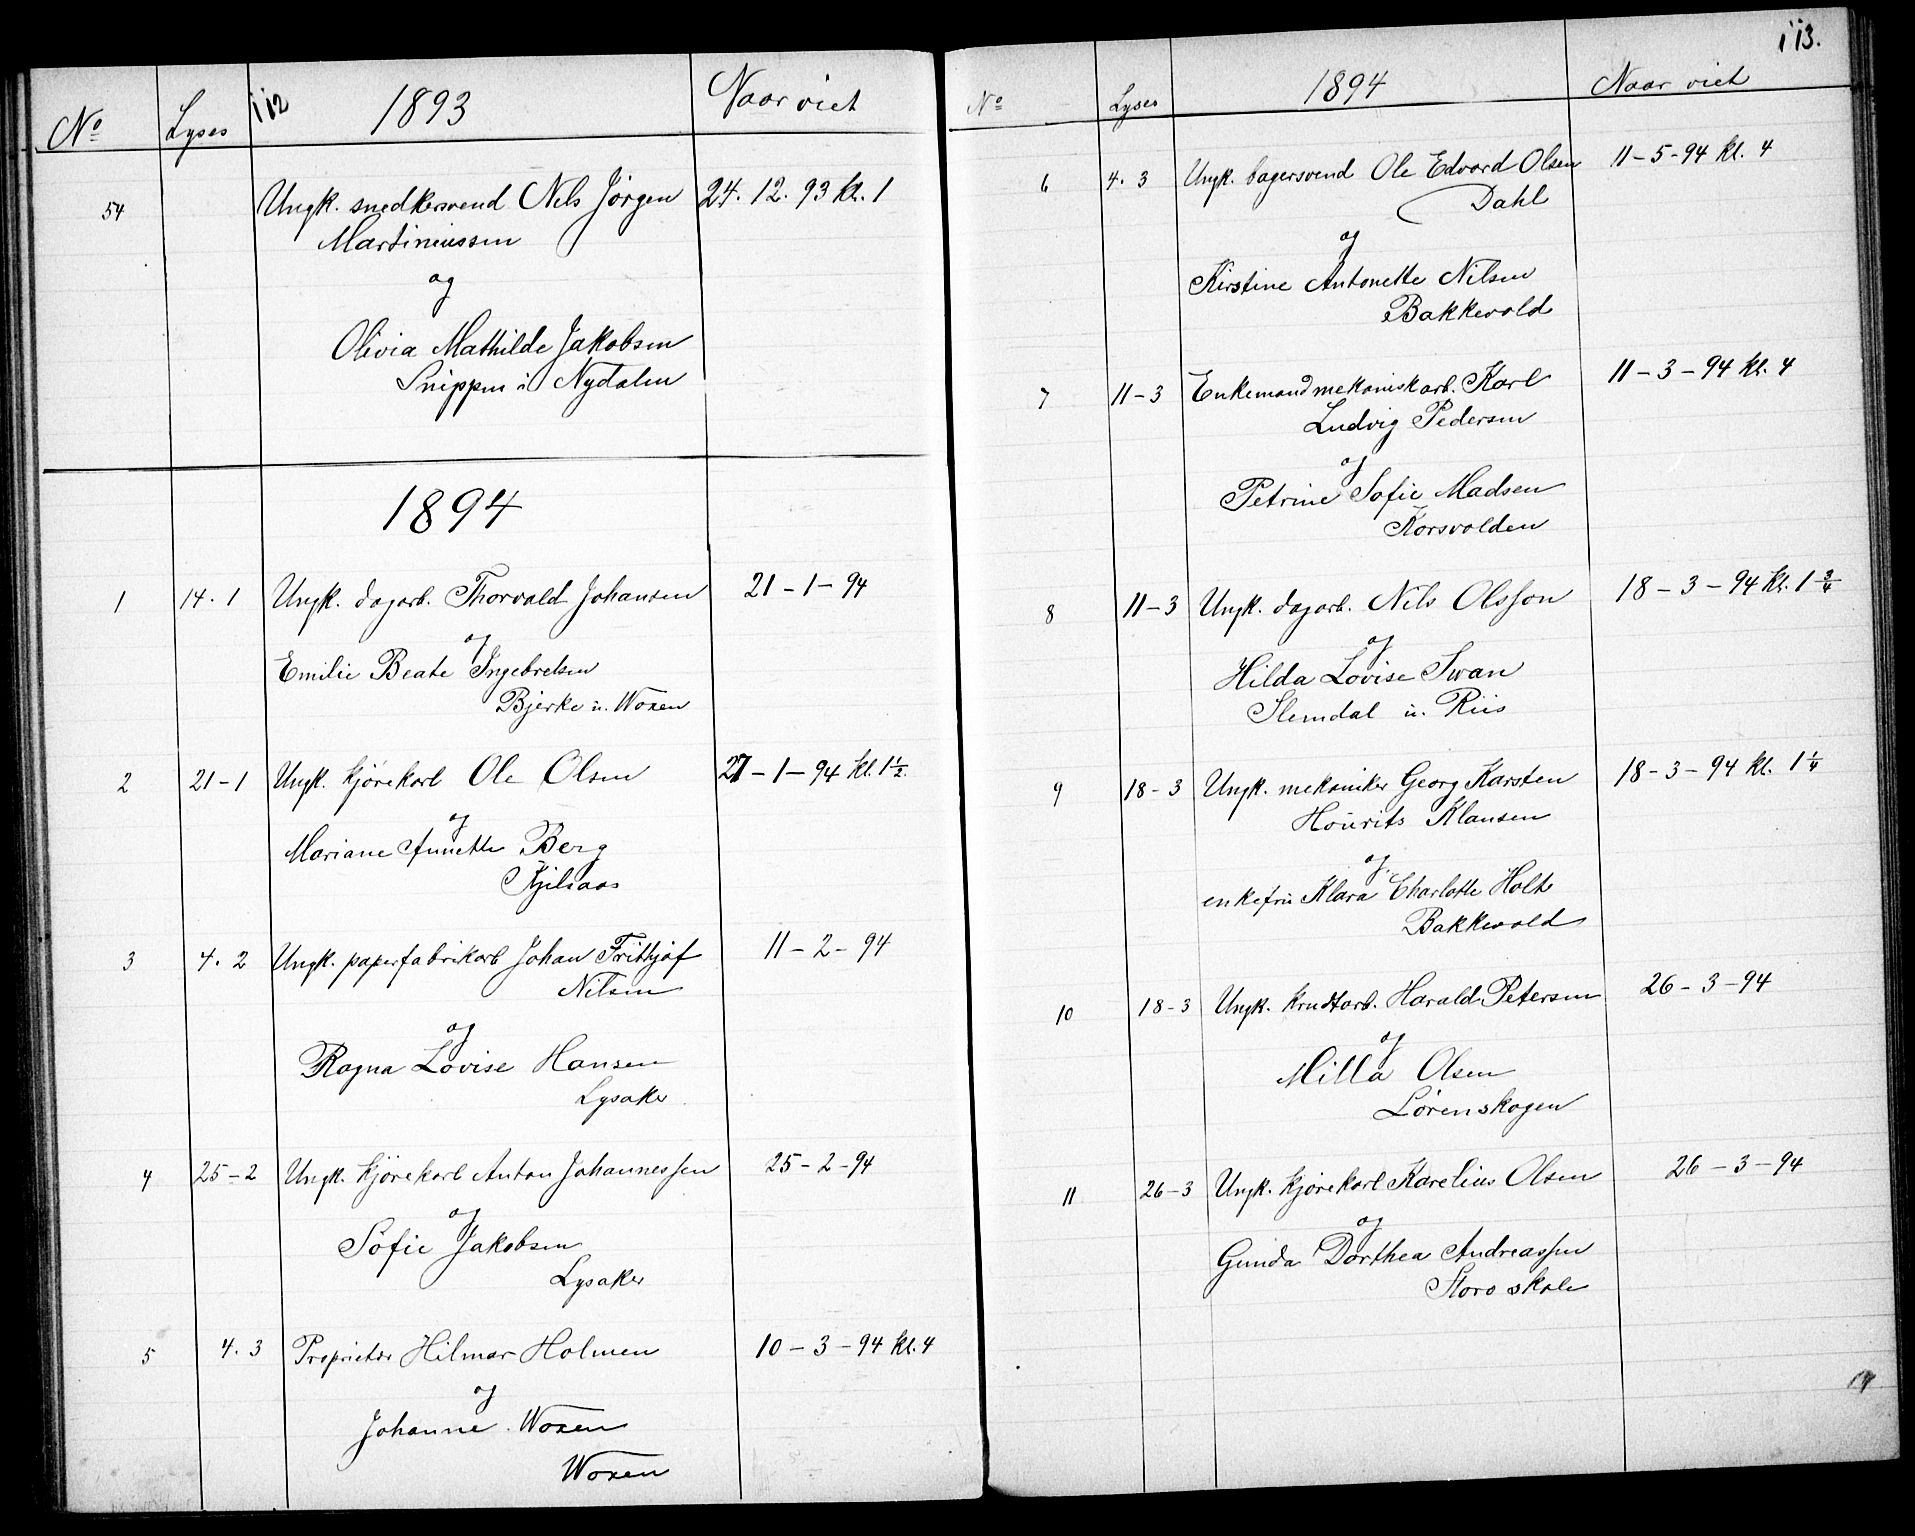 112
No Lyses 1893 Naar viet
54 Ungk. snedkersvend Nils Jörgen 24. 12. 93 kl. 1
Martiniussen
og
Olivia Mathilde Jakobsen
Snippen i Nydalen
1894
1 14. 1 Ungk. dagarb. Thorvald Johansen 21-1-94
og
Emilie Beate Ingebretsen
Bjerke u. Woxen
2 21-1 Ungk. kjörekarl Ole Olsen 27-1-94 kl. 1 1/2.
og
Mariane Annette Berg
Kjelsaas
3 4. 2 Ungk. papirfabrikarb Johan Frithjof 11-2-94
Nilsen
og
Ragna Lovise Hansen
Lysaker
4 25-2 Ungk. kjörekarl Anton Johannessen 25-2-94
og
Sofie Jakobsen
Lysaker
5 4. 3 Proprietær Hilmar Holmen 10-3-94 kl. 4
og
Johanne Woxen
Woxen
113.
No Lyses 1894 Naar viet
6 4. 3 Ungk. bagersvend Ole Edvard Olsen 11-5-94 kl. 4
Dahl
og
Kirstine Antonette Nilsen
Bakkevold
7 11-3 Enkemand mekaniskarb. Karl 11-3-94 kl. 4
Ludvig Pedersen
og
Petrine Sofie Madsen
Korsvolden
8 11-3 Ungk. dagarb. Nils Olsson 18-3-94 kl. 1 3/4
og
Hilda Lovise Swan
Slemdal u. Riis
9 18-3 Ungk. mekaniker Georg Karsten 18-3-94 kl. 1 1/4
Houritz Klausen
og
enkefru Klara Charlotte Holt
Bakkevold
10 18-3 Ungk. krudtarb. Harald Petersen 26-3-94
og
Milla Olsen
Lörenskogen
11 26-3 Ungk. kjörekarl Karelius Olsen 26-3-94
og
Gunda Dorthea Andreassen
Storo skole